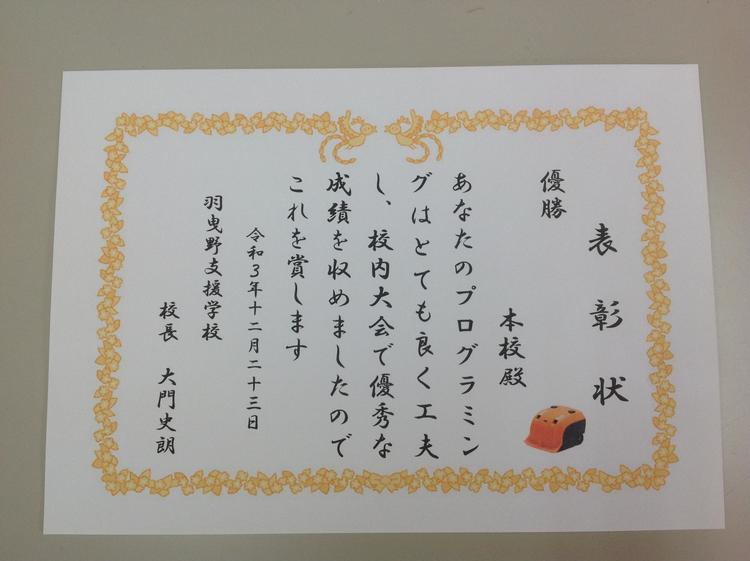 表彰状
優勝
本校殿
あなたのプログラミン
グはとても良く工夫
し、校内大会で優秀な
成績を収めましたので
これを賞します
令和3年十二月二十三日
羽曳野支援学校
校長 大門史朗